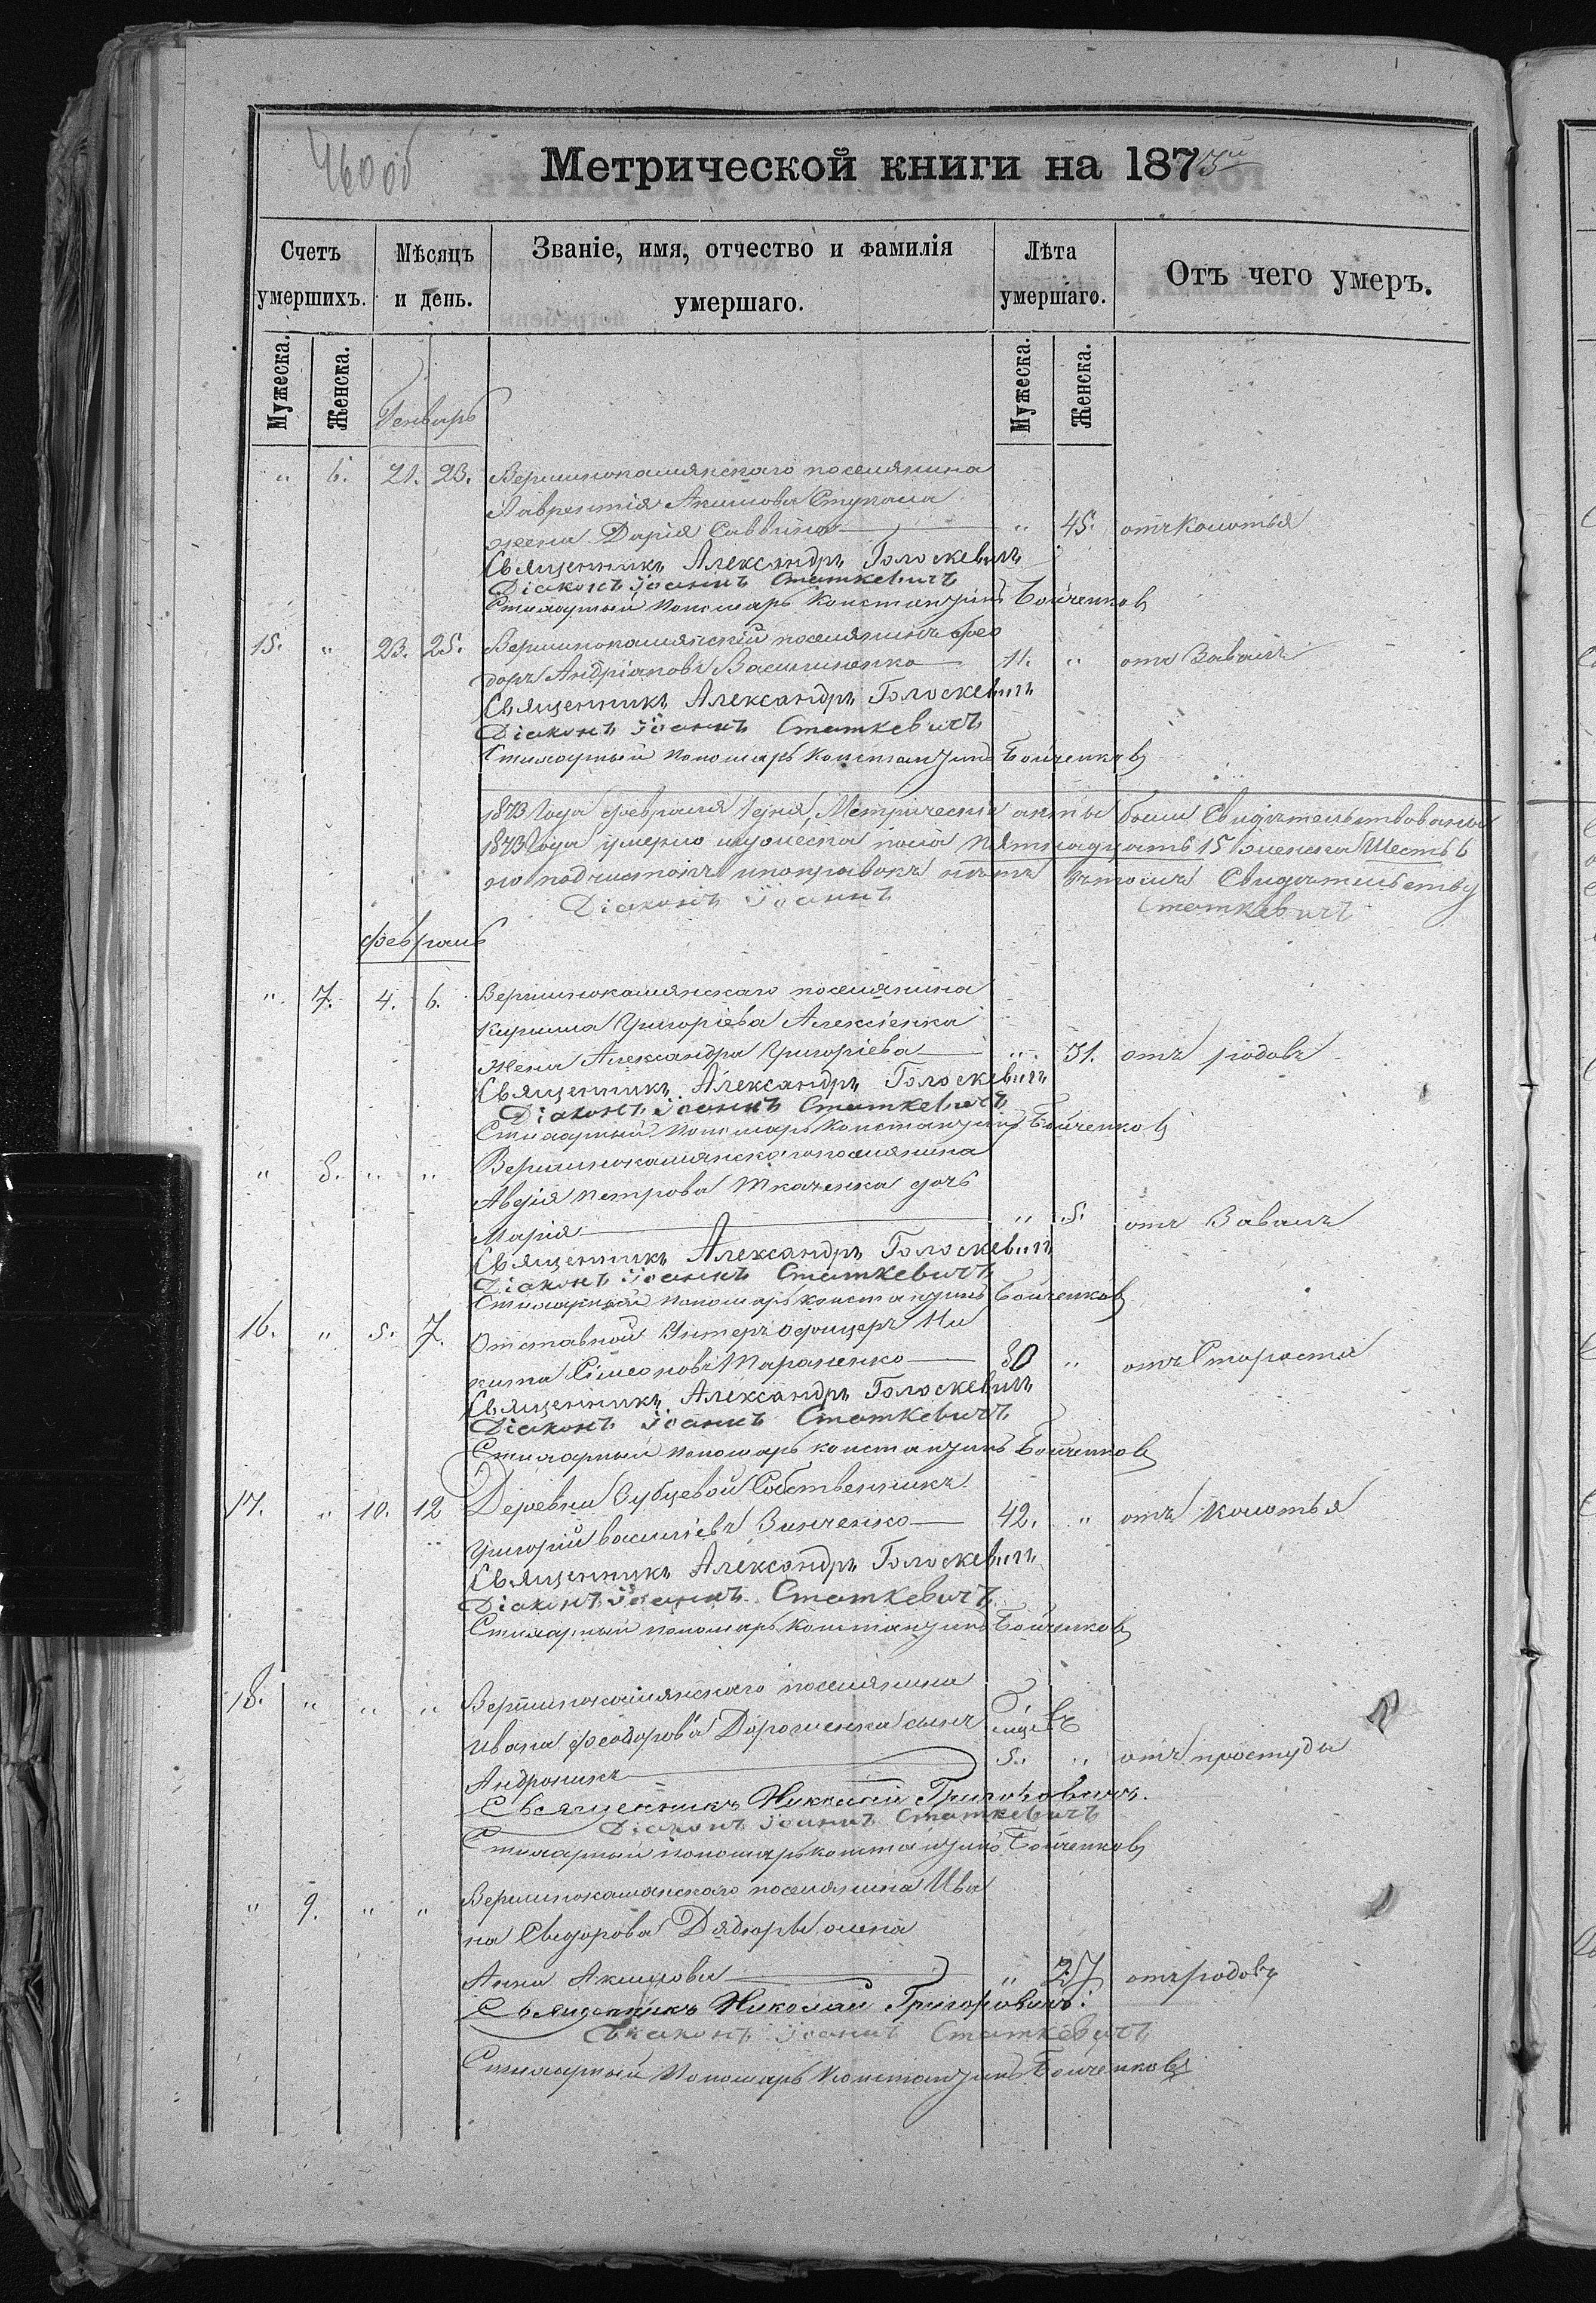 Метрической книги на 1873й
Счетъ умершихъ.
Мѣсяцъ и день.
Званіе, имя, отчество и фамилія умершаго.
Лѣта умершаго.
Отъ чего умеръ.
Мужеска. Женска. Мужеска. Женска.
Генварь
" 6. 21. 23. Вершинокамянскаго поселянина
Лаврентія Акимова Стукала
жена Дарія Саввина " 45. отъ Колотья
Священникъ Александръ Голоскевичъ
Діаконъ Іоаннъ Статкевичъ
Стихарный Пономарь Константинъ Бойченковъ
15. " 23. 25. Вершинокамянскій поселянинъ Фео
доръ Андріановъ Василиненко 11. " отъ Завалъ
Священникъ Александръ Голоскевичъ
Діаконъ Іоаннъ Статкевичъ
Стихарный Пономарь Константинъ Бойченковъ
1873 Года февраля 1 дня, Метрическіе акты были Свидѣтельствованы
1873 Года умерло мужеска пола пятнадцать 15 женска Шесть 6
но подчистокъ и поправокъ нѣтъ въ томъ Свидѣтельствую
Діаконъ Іоаннъ Статкевичъ
февраль
" 7. 4. 6. Вершинокамянскаго поселянина
Кирилла Григоріева Алексѣенка
жена Александра Григоріева " 31. отъ родовъ
Священникъ Александръ Голоскевичъ
Діаконъ Іоаннъ Статкевичъ
Стихарный Пономарь Константинъ Бойченковъ
" 8. " " Вершинокамянскаго поселянина
Авдія Петрова Ткаченка дочь
Марія " 5. отъ Завалъ
Священникъ Александръ Голоскевичъ
Діаконъ Іоаннъ Статкевичъ
Стихарный Пономарь Константинъ Бойченковъ
16. " 5. 7. Отставной Унтеръ офицеръ Ни
кита Сімеоновъ Тараненко 80 " отъ Старости
Священникъ Александръ Голоскевичъ
Діаконъ Іоаннъ Статкевичъ
Стихарный Пономарь Константинъ Бойченковъ
17. " 10. 12 Деревни Зубцевой Собственникъ
Григорій Василіевъ Зинченко 42. " отъ Колотья
Священникъ Александръ Голоскевичъ
Діаконъ Іоаннъ Статкевичъ
Стихарный Пономарь Константинъ Бойченковъ
18. " " " Вершинокамянскаго поселянина
Ивана Феодорова Дорошенка сынъ
Андроникъ 5. " отъ простуды
Священникъ Николай Григоровичъ.
Діаконъ Іоаннъ Статкевичъ
Стихарный Пономарь Константинъ Бойченковъ
" 9. " " Вершинокамянскаго поселянина Ива
на Сидорова жена
Анна Акимова " 27 отъ родовъ
Священникъ Николай Григоровичъ.
Діаконъ Іоаннъ Статкевичъ
Стихарный Пономарь Константинъ Бойченковъ